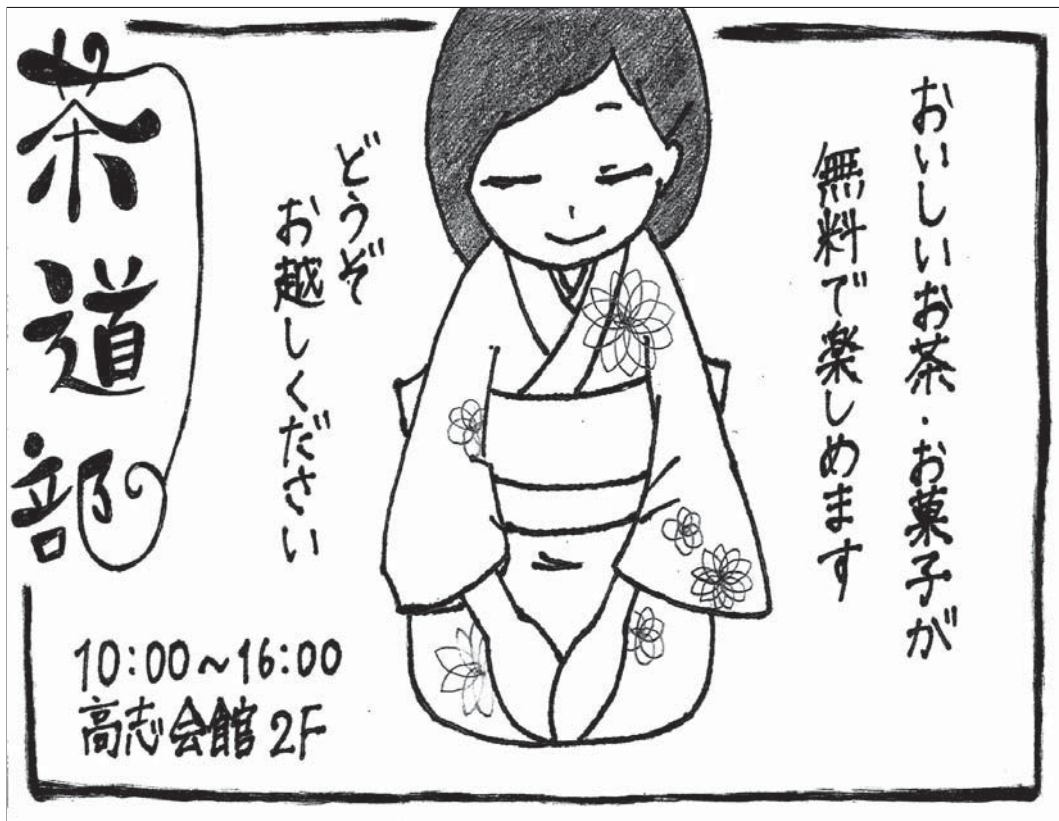 おいしいお茶・お菓子が
無料で楽しめます
どうぞ
お越しください
茶道部
10:00～16:00
高志会館2F